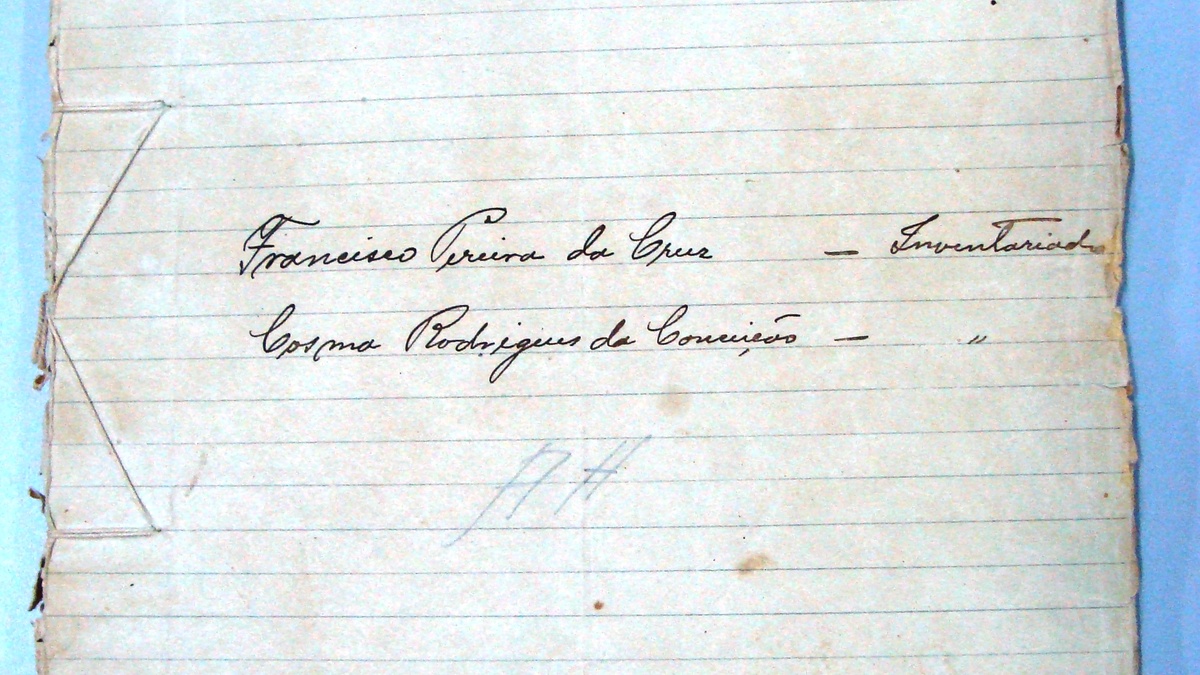 Francisco Pereira da Cruz — Inventariado
Cosma Rodrigues da Conceição — "